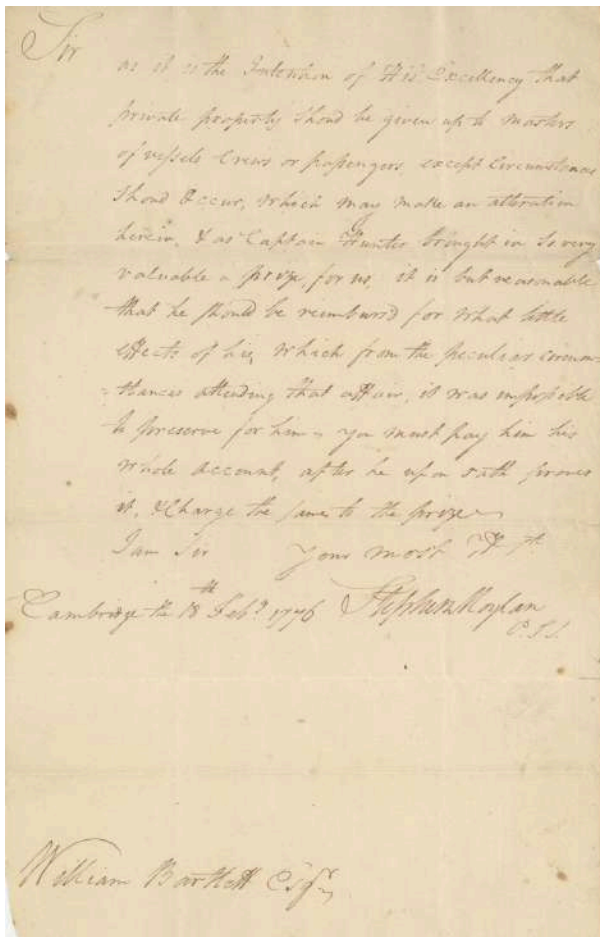 Sir
as it is the Intention of His Excellency that
private property should be given up to masters
of vessels Crews or passengers, except Circumstances
Shoud Occur, which may make an alteration
herein, & as Captain Hunter brought in So very
valuable a prize, for us, it is but reasonable
that he should be reimbursd for what little
effects of his, which from the peculiar circum-
-stances attending that affair, it was impossible
to preserve for him - you must pay him his
whole account, after he upon oath proves
it, & Charge the same to the prize -
I am Sir your most H St
Cambridge the 18th Feby 1776 Stephen Moylan
William Bartlett Esqr